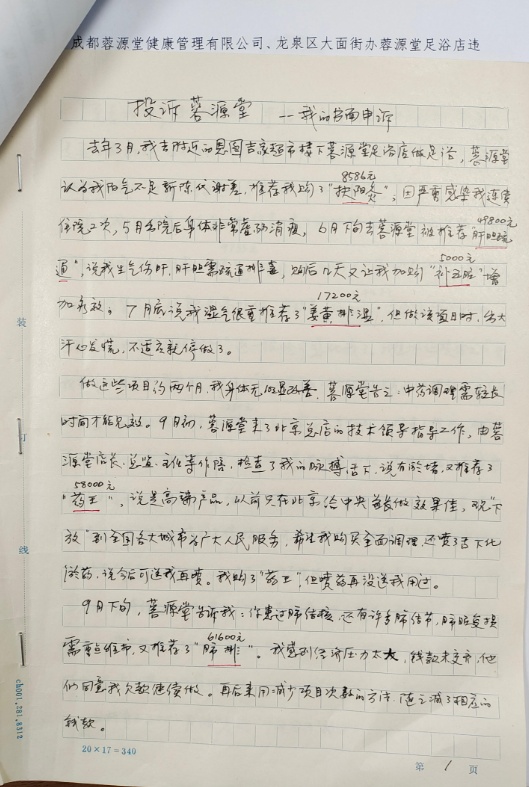 成都蓉源堂健康管理有限公司、龙泉区大面街办蓉源堂足浴店违
投诉蓉源堂 --我的书面申诉
去年3月,我去附近的恩图吉家超市楼下蓉源堂足浴店做足浴,蓉源堂
8586元
认为我阳气不足新陈代谢差,推荐我购了"扶阳灸",因严重感染我连续
住院2次,5月出院后身体非常虚弱消瘦,6月下旬去蓉源堂被推荐肝胆疏
49800元
通",说我生气伤肝,肝胆需疏通排毒,购后几天又让我加购"补五脏"增
5000元
加免疫。7月底说我湿气很重推荐了"姜黄排湿",但做该项目时,出大
17200元
汗心发慌,不适应就停做了。
做这些项目约两个月,我身体无明显改善,蓉源堂告之:中药调理需较长
时间才能见效。9月初,蓉源堂来了北京总店的技术领导指导工作,由蓉
源堂店长、总监、主任等作陪,检查了我的脉搏舌下,说有瘀堵,又推荐了
58000元
"药王",说是高端产品,以前只在北京给中央首长做效果佳,现"下
放"到全国各大城市为广大人民服务,希望我购买全面调理,还喷了舌下化
瘀药,说今后可送我再喷。我购了"药王",但喷药再没送我用过。
9月下旬,蓉源堂告诉我:你患过肺结核,还有许多肺结节,肺脏受损
61600元
需重点维护,又推荐了"肺排"。我感到经济压力太大,钱款未交齐,他
们同意我欠款继续做。再后采用减少项目次数的方法,随之减了相应的
钱款。
装
订
线
cb001.781.8312
20×17=340
第 1 页